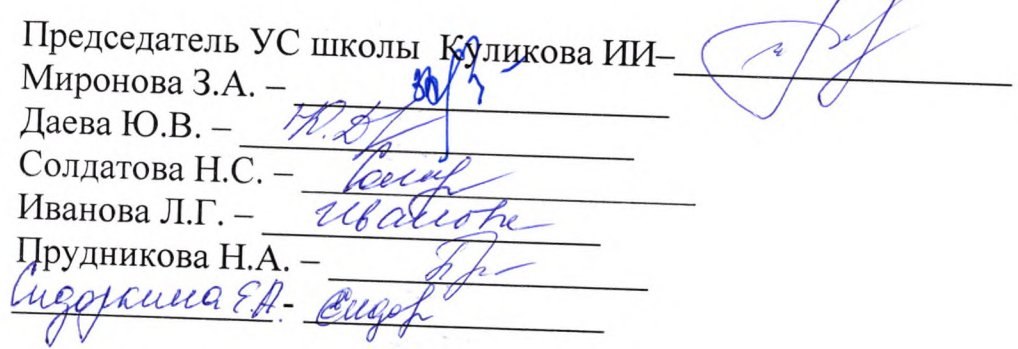 Председатель УС школы Куликова ИИ–
Миронова З.А. –
Даева Ю.В. – Ю.Д
Солдатова Н.С. – Солд
Иванова Л.Г. – Иванова
Прудникова Н.А. – Пр
Сидоркина Е.А. - Сидор